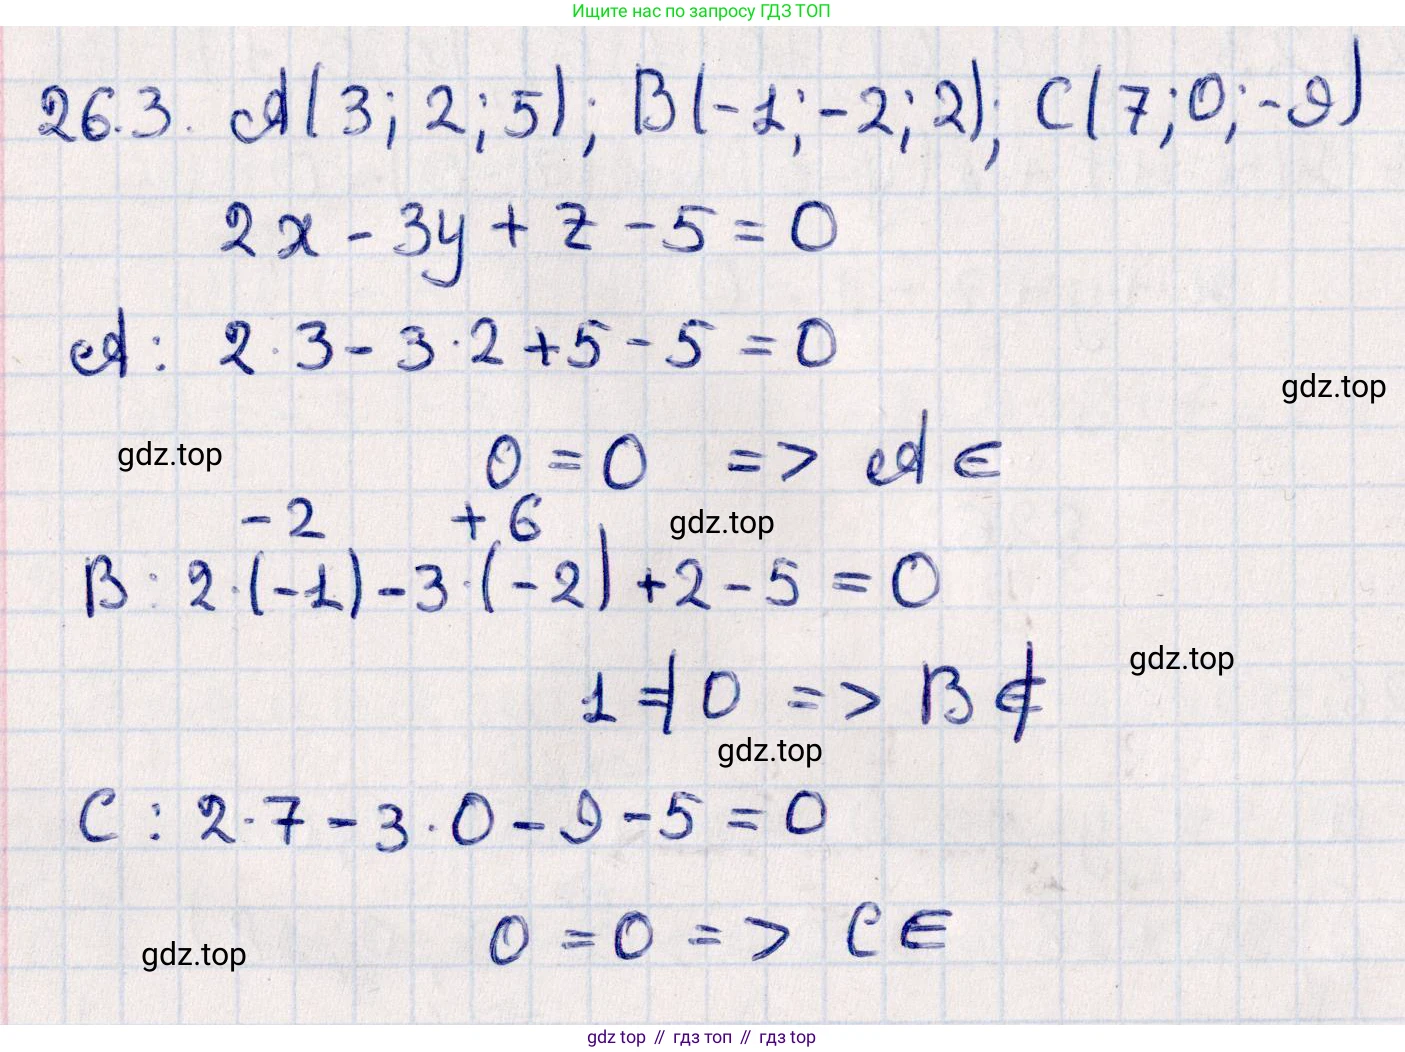 Ищите нас по запросу ГДЗ ТОП
26.3. A(3; 2; 5); B(-1; -2; 2); C(7; 0; -9)
2x - 3y + z - 5 = 0
A: 2·3 - 3·2 + 5 - 5 = 0
gdz.top
gdz.top
0 = 0 => A ∈
-2 +6
gdz.top
B: 2·(-1) - 3·(-2) + 2 - 5 = 0
gdz.top
1 ≠ 0 => B ∉
gdz.top
C: 2·7 - 3·0 - 9 - 5 = 0
0 = 0 => C ∈
gdz.top
gdz top // гдз топ // gdz top